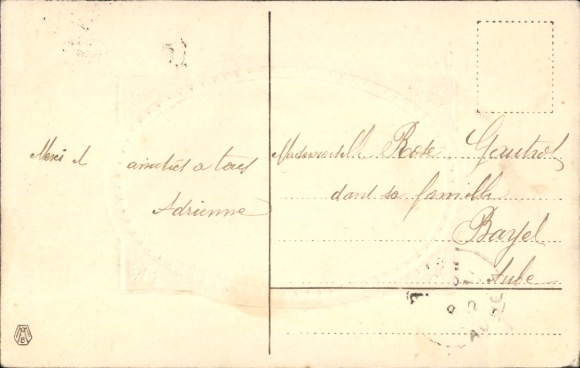 Merci et amitiés a tous
Adrienne
Mademoiselle Rose Gautrot
dans sa famille
Bayel
Aube